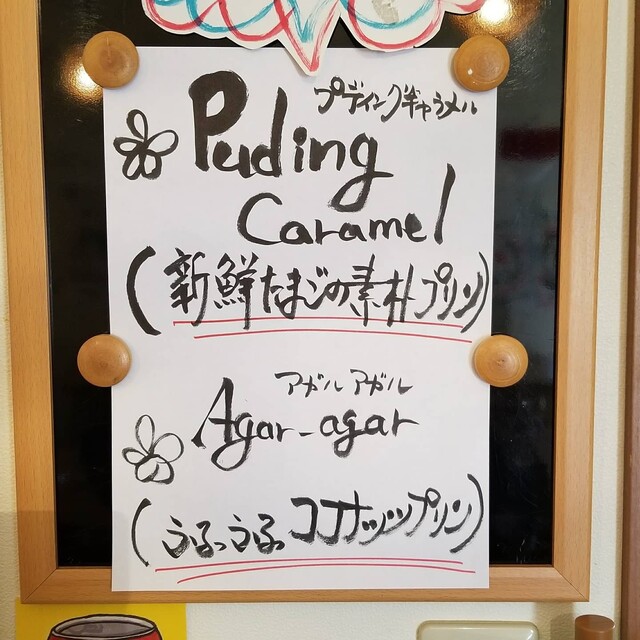 プディングキャラメル
Puding
Caramel
(新鮮たまごの素朴プリン)
アガル アガル
Agar-agar
(うふっうふっココナッツプリン)